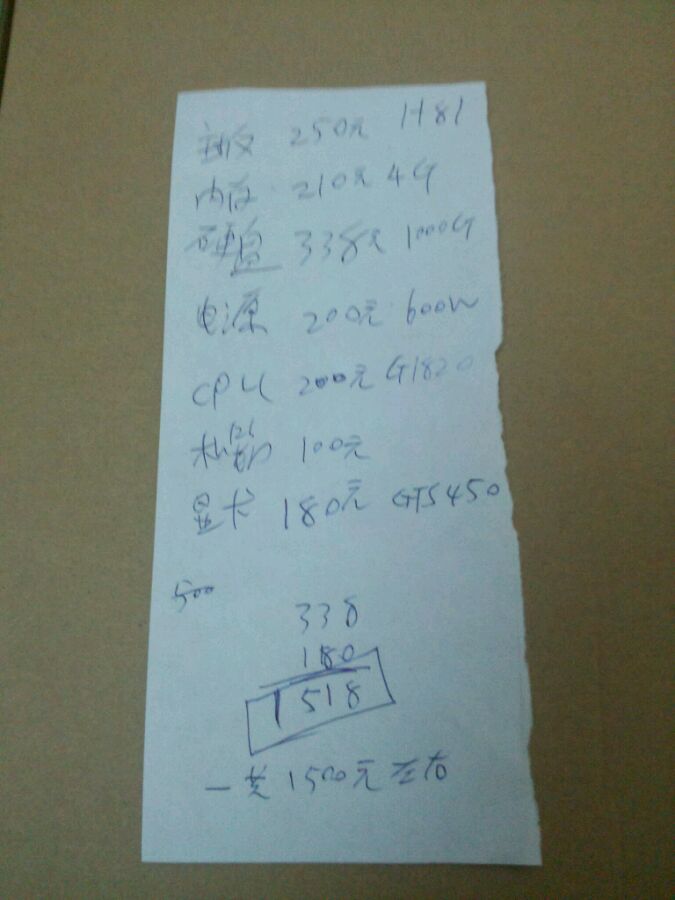 主板 250元 H81
内存 210元 4G
硬盘 338元 1000G
电源 200元 600W
CPU 200元 G1820
机箱 100元
显卡 180元 GTS450
500
338
180
1518
一共1500元左右